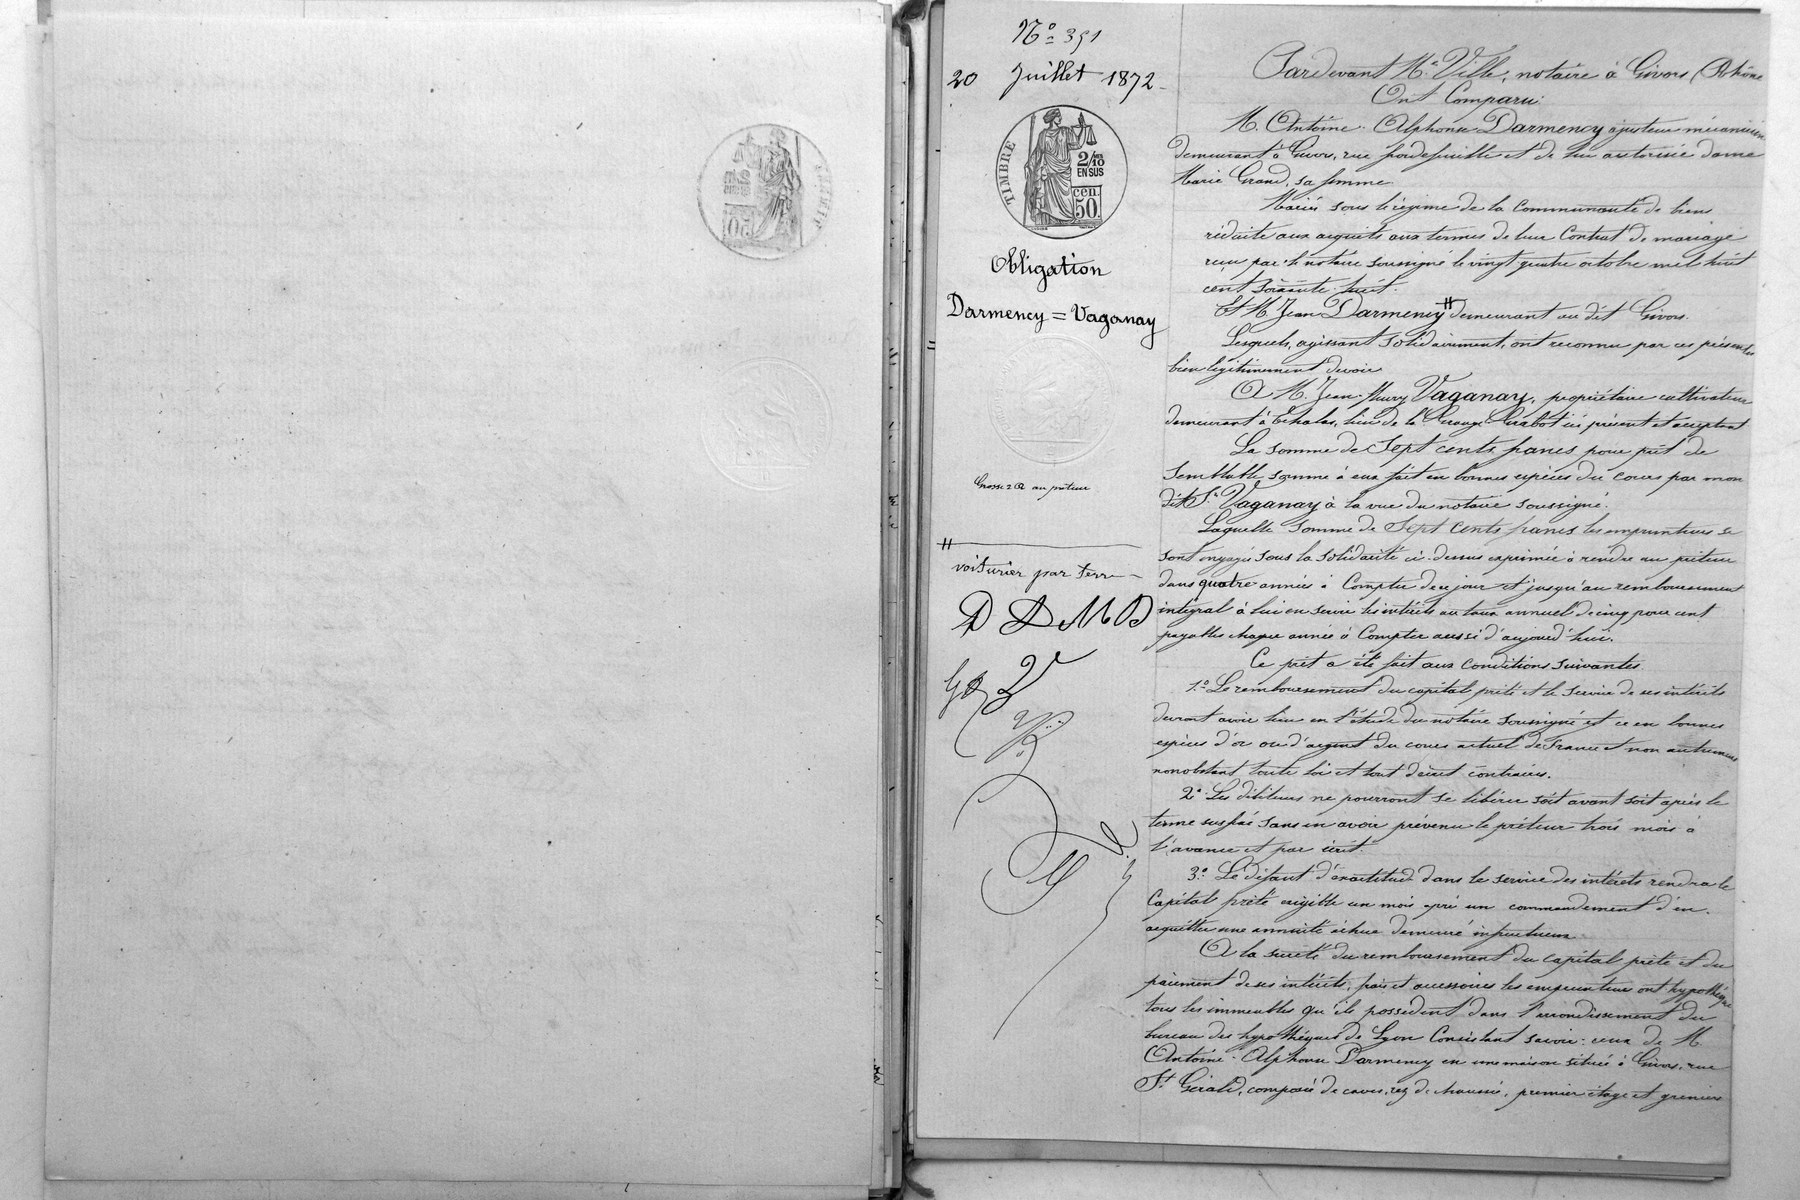 N° 351
20 Juillet 1872
TIMBRE
2/10
EN SUS
cen.
50.
Obligation
Darmency = Vaganay
Grosse au prêteur
voiturier par terre
D D M D
Pardevant Me Ville, notaire à Givors (Rhône
Ont Comparu:
M. Antoine Alphonse Darmency ajusteur mécanicien
demeurant à Givors, rue et de lui autorisée dame
Marie Grand, sa femme.
Mariés sous le régime de la Communauté de biens
réduite aux acquêts aux termes de leur Contrat de mariage
reçu par le notaire soussigné le vingt quatre octobre mil huit
cent soixante huit.
Et M. Jean Darmency demeurant au dit Givors.
Lesquels, agissant solidairement, ont reconnu par ces présentes
bien légitimement devoir
A M. Jean Fleury Vaganay, propriétaire cultivateur
demeurant à Echalas, lieu de la ici présent et acceptant
La somme de Sept cents francs pour prêt de
semblable somme à eux fait en bonnes espèces du cours par mon
dit Sr Vaganay à la vue du notaire soussigné.
Laquelle somme de Sept cents francs les emprunteurs se
sont engagés sous la solidarité ci-dessus exprimée à rendre au prêteur
dans quatre années à Compter de ce jour et jusqu'au remboursement
intégral à lui en servir les intérêts au taux annuel de cinq pour cent
payables chaque année à Compter aussi d'aujourd'hui.
Ce prêt a été fait aux conditions suivantes
1° Le remboursement du capital prêté et le service de ses intérêts
devront avoir lieu en l'étude du notaire soussigné et ce en bonnes
espèces d'or ou d'argent du cours actuel de France et non autrement
nonobstant toute loi et tout décret contraires.
2° Les débiteurs ne pourront se libérer soit avant soit après le
terme susfixé sans en avoir prévenu le prêteur trois mois à
l'avance et par écrit.
3° Le défaut d'exactitude dans le service des intérêts rendra le
Capital prêté exigible un mois après un commandement d'en
acquitter une annuité échue demeuré infructueux
A la sûreté du remboursement du capital prêté et du
paiement de ses intérêts, frais et accessoires les emprunteurs ont hypothéqué
tous les immeubles qu'ils possèdent dans l'arrondissement du
bureau des hypothèques de Lyon Consistant savoir: ceux de M.
Antoine Alphonse Darmency en une maison située à Givors, rue
St Gérald, composée de caves, rez de chaussée, premier étage et greniers